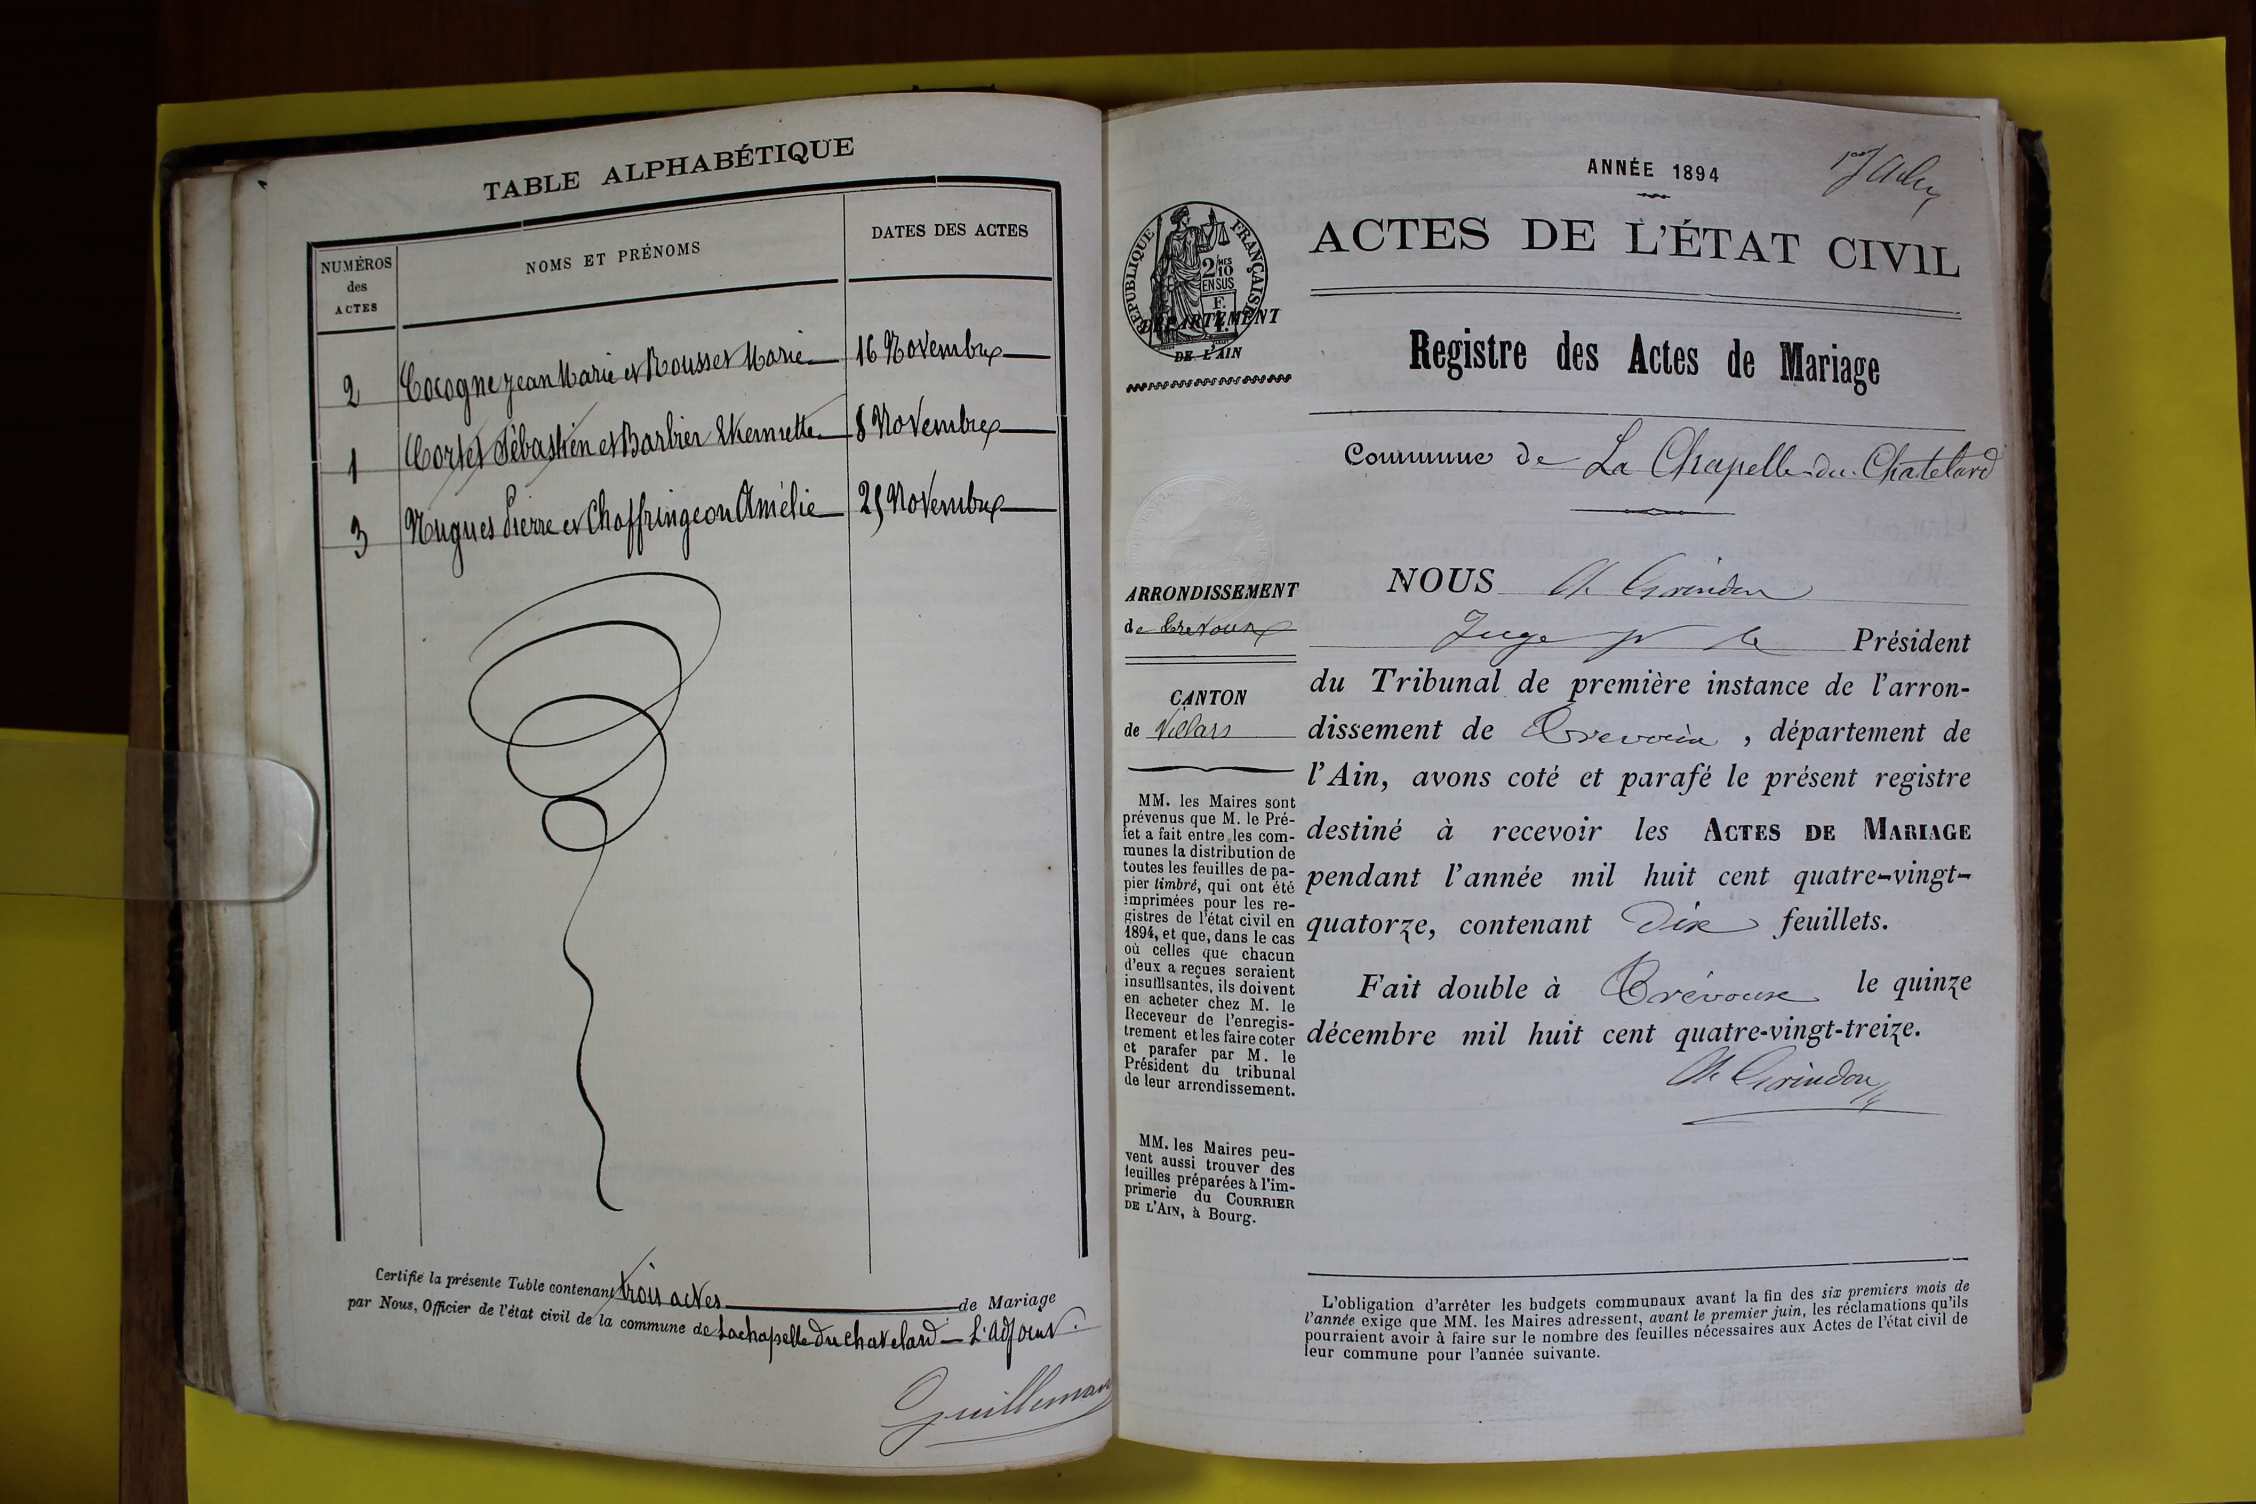 TABLE ALPHABÉTIQUE
NUMÉROS
des
ACTES
NOMS ET PRÉNOMS
DATES DES ACTES
2 Cocogne Jean Marie et Rousset Marie 16 Novembre
1 Cortet Sébastien et Barbier 8 Novembre
3 Nugues Pierre et Chaffringeon Amélie 25 Novembre
Certifie la présente Table contenant trois actes de Mariage
par Nous, Officier de l'état civil de la commune de Lachapelle du chatelard L'Adjoint.
ANNÉE 1894
ACTES DE L'ÉTAT CIVIL
RÉPUBLIQUE FRANÇAISE
2/10
EN SUS
DÉPARTEMENT
DE L'AIN
Registre des Actes de Mariage
Commune de La Chapelle-du-Chatelard
ARRONDISSEMENT
de Trevoux
CANTON
de Villars
MM. les Maires sont
prévenus que M. le Pré-
fet a fait entre les com-
munes la distribution de
toutes les feuilles de pa-
pier timbré, qui ont été
imprimées pour les re-
gistres de l'état civil en
1894, et que, dans le cas
où celles que chacun
d'eux a reçues seraient
insuffisantes, ils doivent
en acheter chez M. le
Receveur de l'enregis-
trement et les faire coter
et parafer par M. le
Président du tribunal
de leur arrondissement.
MM. les Maires peu-
vent aussi trouver des
feuilles préparées à l'im-
primerie du COURRIER
DE L'AIN, à Bourg.
NOUS
Juge pr le Président
du Tribunal de première instance de l'arron-
dissement de Trevoux, département de
l'Ain, avons coté et parafé le présent registre
destiné à recevoir les ACTES DE MARIAGE
pendant l'année mil huit cent quatre-vingt-
quatorze, contenant Dix feuillets.
Fait double à Trévoux le quinze
décembre mil huit cent quatre-vingt-treize.
L'obligation d'arrêter les budgets communaux avant la fin des six premiers mois de
l'année exige que MM. les Maires adressent, avant le premier juin, les réclamations qu'ils
pourraient avoir à faire sur le nombre des feuilles nécessaires aux Actes de l'état civil de
leur commune pour l'année suivante.